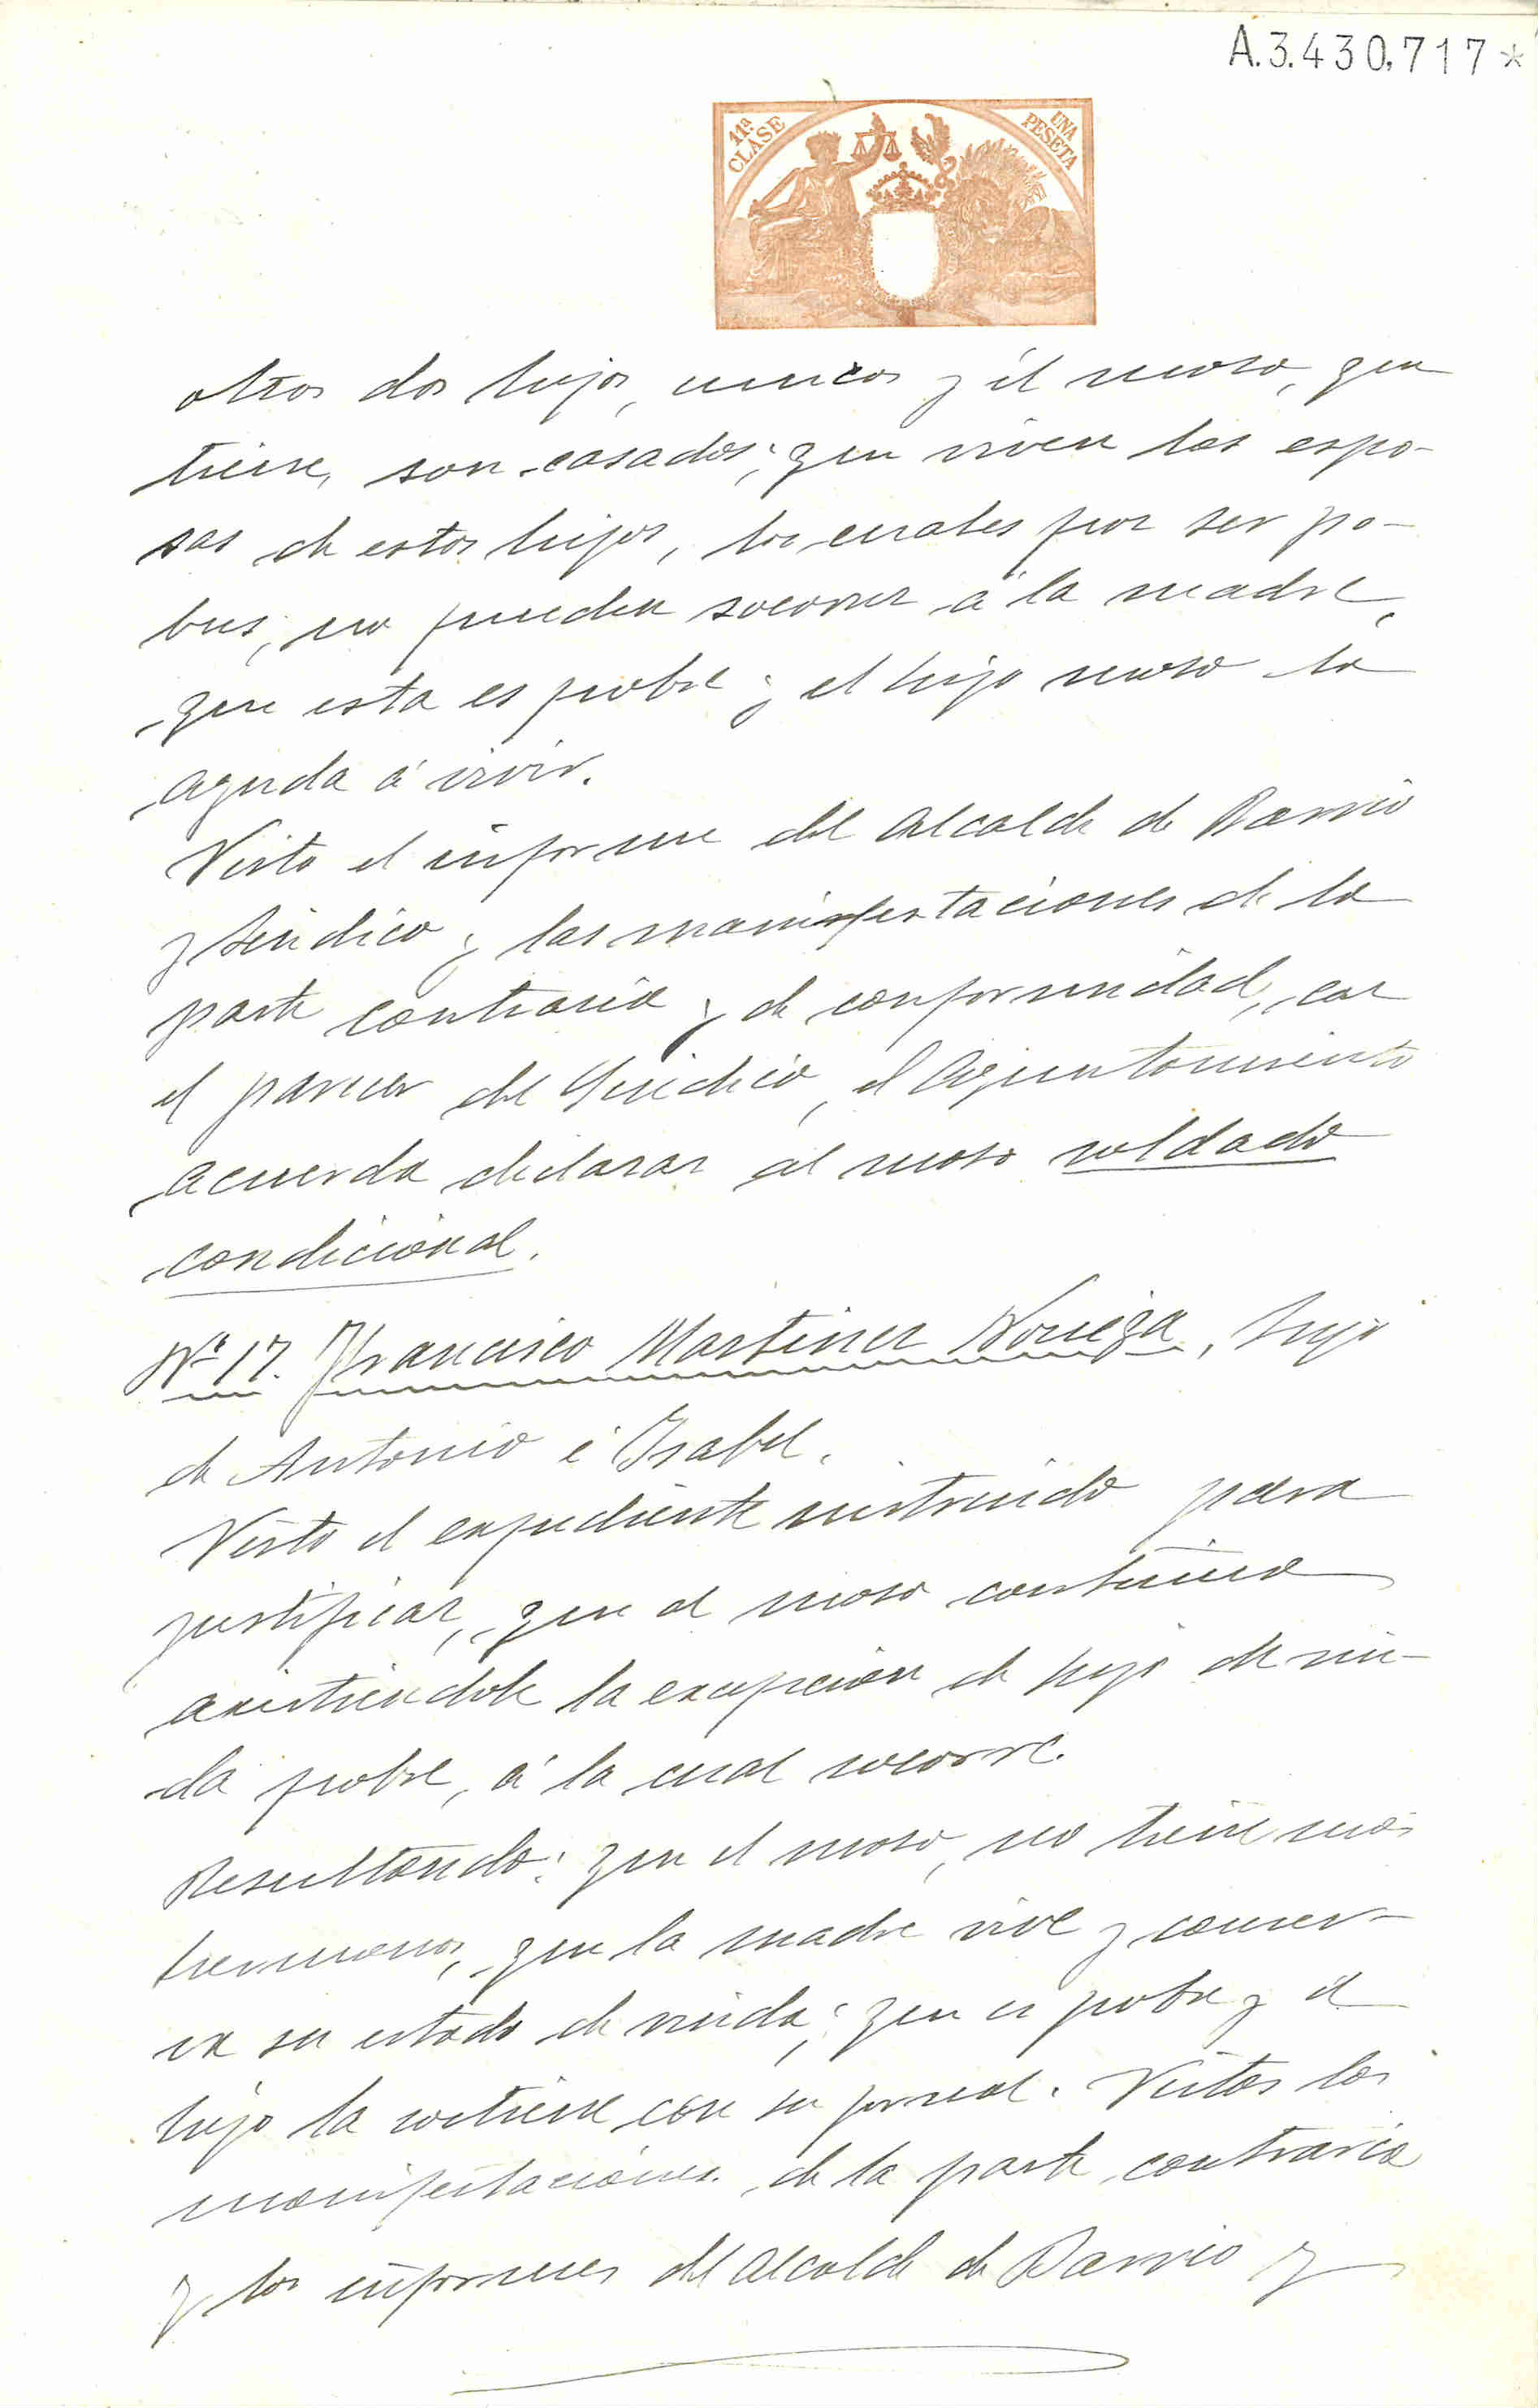 A.3.430.717*
11ª CLASE
UNA PESETA
otros dos hijos, unicos y él moso, que
tiene, son casados; que viven las espo-
sas de estos hijos, los cuales por ser po-
bres, no pueden socorrer á la madre,
que esta es pobre y el hijo moso la
ayuda á vivir.
Visto el informe del Alcalde de Barrio
y Sindico y las manifestaciones de la
parte contraria y de conformidad, con
el parecer del Sindico, el Ayuntamiento
acuerda declarar al moso soldado
condicional.
Nº 17. Francisco Martinez Noriega, hijo
de Antonio é Ysabel.
Visto el expediente instruido para
justificar, que al moso continúa
asistiendole la excepcion de hijo de viu-
da pobre, á la cual socorre.
Resultando: que el moso, no tiene mas
hermanos, que la madre vive y conser-
va su estado de viuda; que es pobre y el
hijo la sostiene con su jornal. Vistas las
manifestaciones de la parte contraria
y los informes del Alcalde de Barrio y